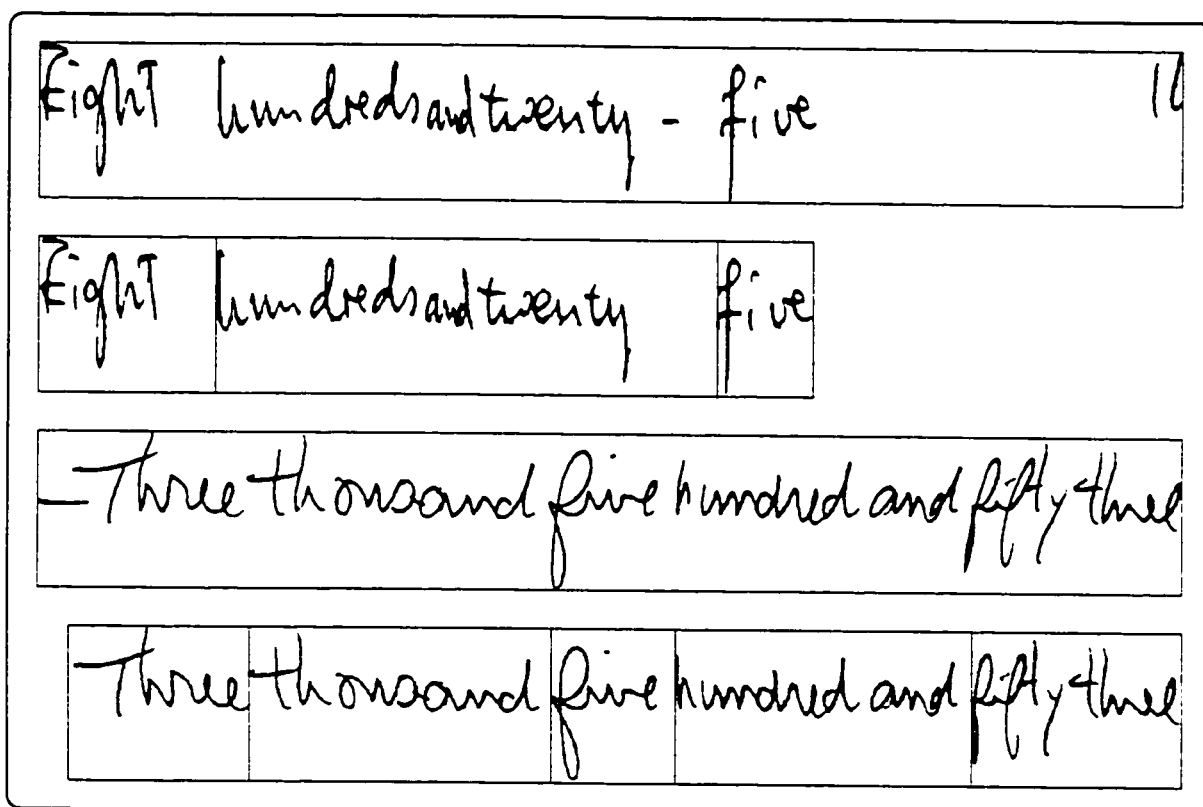 Eight hundreds and twenty - five
Eight hundreds and twenty five
- Three thousand five hundred and fifty three
Three thousand five hundred and fifty three